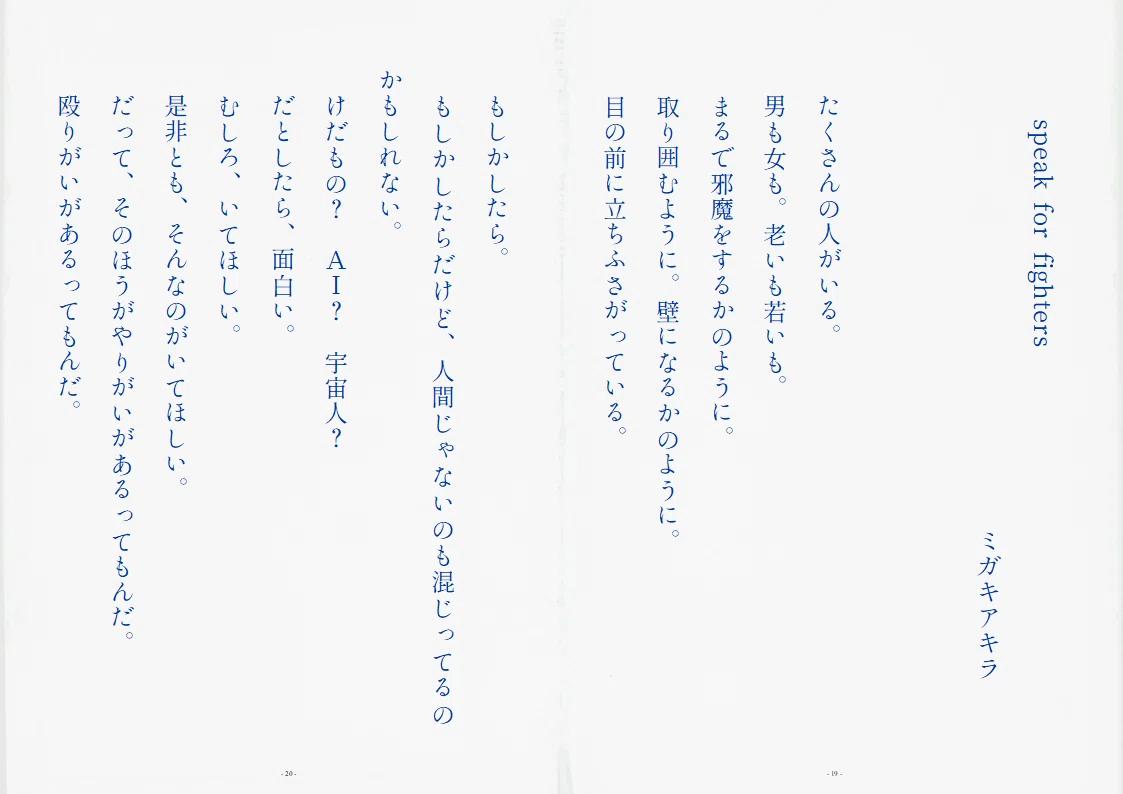 speak for fighters
ミガキアキラ
たくさんの人がいる。
男も女も。老いも若いも。
まるで邪魔をするかのように。
取り囲むように。壁になるかのように。
目の前に立ちふさがっている。
- 19 -
もしかしたら。
もしかしたらだけど、人間じゃないのも混じってるの
かもしれない。
けだもの？　ＡＩ？　宇宙人？
だとしたら、面白い。
むしろ、いてほしい。
是非とも、そんなのがいてほしい。
だって、そのほうがやりがいがあるってもんだ。
殴りがいがあるってもんだ。
- 20 -